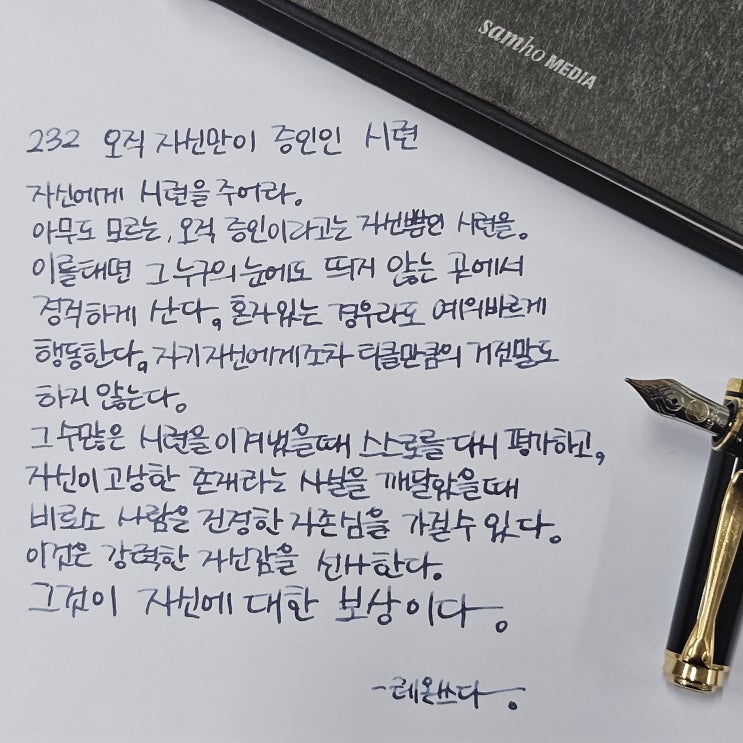 samho MEDIA
232 오직 자신만이 증인인 시련
자신에게 시련을 주어라.
아무도 모르는, 오직 증인이라고는 자신뿐인 시련을.
이를태면 그 누구의 눈에도 띄지 않는 곳에서
정직하게 산다, 혼자있는 경우라도 예의바르게
행동한다, 자기자신에게조차 티클만큼의 거짓말도
하지 않는다.
그 수많은 시련을 이겨냈을때 스스로를 다시 평가하고,
자신이 고상한 존재라는 사실을 깨달았을때
비로소 사람은 진정한 자존심을 가질수 있다.
이것은 강력한 자신감을 선사한다.
그것이 자신에 대한 보상이다.
-레온쓰다.